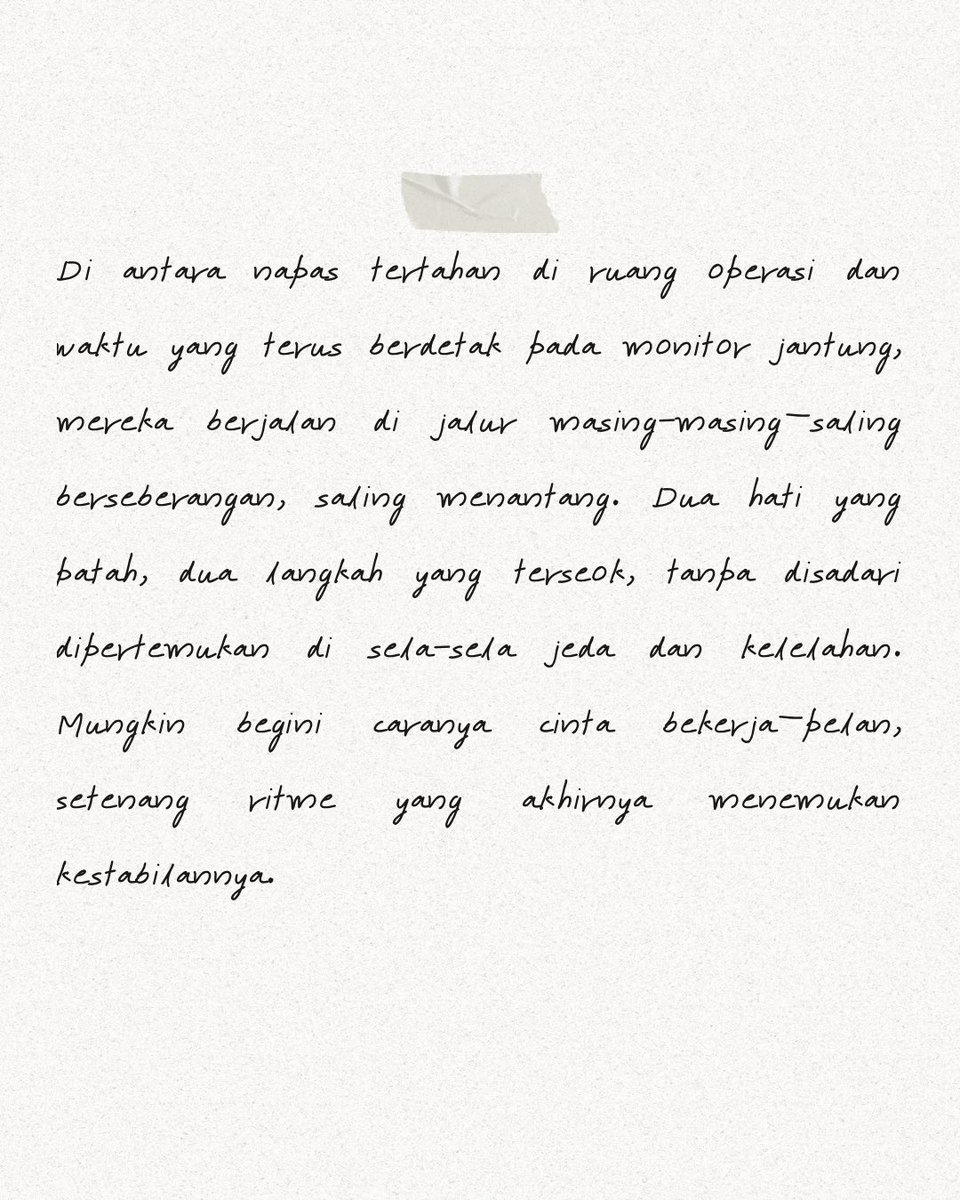 Di antara napas tertahan di ruang operasi dan
waktu yang terus berdetak pada monitor jantung,
mereka berjalan di jalur masing-masing—saling
berseberangan, saling menantang. Dua hati yang
patah, dua langkah yang terseok, tanpa disadari
dipertemukan di sela-sela jeda dan kelelahan.
Mungkin begini caranya cinta bekerja—pelan,
setenang ritme yang akhirnya menemukan
kestabilannya.